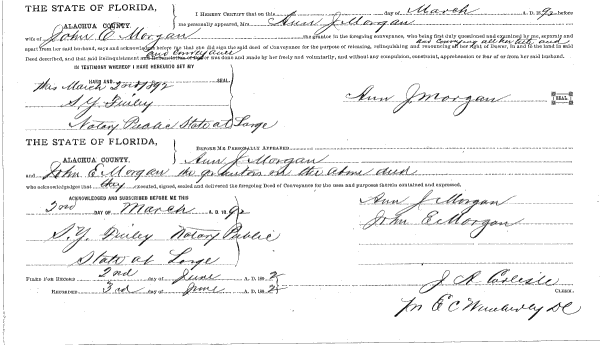 THE STATE OF FLORIDA,
ALACHUA COUNTY.
I HEREBY CERTIFY that on this day of March A. D. 1892 before
me personally appeared, Mrs. Ann J Morgan
wife of John E Morgan the grantor in the foregoing conveyance, who being first duly questioned and examined by me, separate and
apart from her said husband, says and acknowledges before me that she did sign the said deed of Conveyance for the purpose of releasing, relinquishing and renouncing all her right of Dower, in and to the land in said
and conveyance
Deed described, and that said Relinquishment and Renunciation of Dower was done and made by her freely and voluntarily, and without any compulsion, constraint, apprehension or fear of or from her said husband.
IN TESTIMONY WHEREOF I HAVE HEREUNTO SET MY
HAND AND SEAL
this March 2nd 1892
S. Y. Finley
Notary Public State at Large
Ann J Morgan
SEAL
THE STATE OF FLORIDA,
ALACHUA COUNTY.
BEFORE ME PERSONALLY APPEARED
Ann J Morgan
and John E Morgan the grantors in the above deed
who acknowledges that they executed, signed, sealed and delivered the foregoing Deed of Conveyance for the uses and purposes therein contained and expressed,
ACKNOWLEDGED AND SUBSCRIBED BEFORE ME THIS
2nd DAY OF March A. D. 1892
S. Y. Finley Notary Public
State at Large
Ann J Morgan
John E Morgan
FILED FOR RECORD 2nd day of June A. D. 189
RECORDED 3rd day of June A. D. 189
J. A. Carlisle
CLERK.
Per E C Wimberly DC